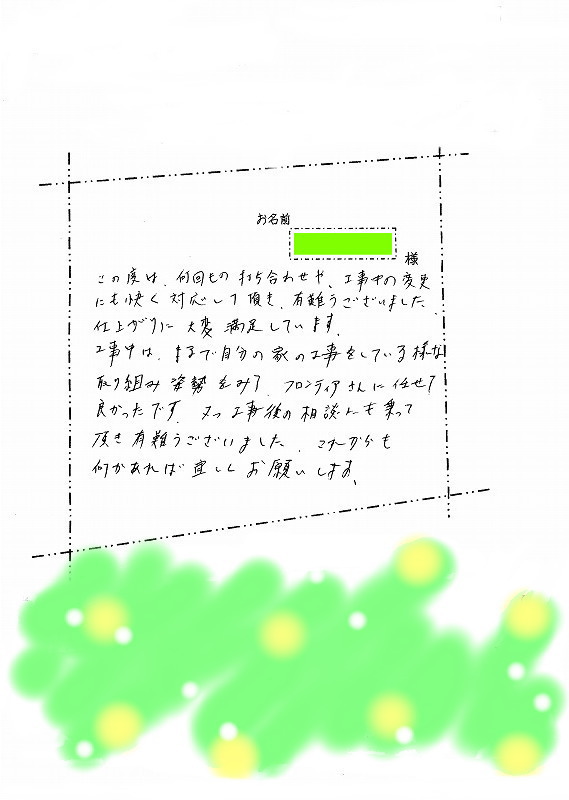 お名前
様
この度は、何回もの打ち合わせや、工事中の変更
にも快く対応して頂き、有難うございました。
仕上がりに大変満足しています。
工事中は、まるで自分の家の工事をしている様な
取り組み姿勢をみて、フロンティアさんに任せて
良かったです。又、工事後の相談にも乗って
頂き有難うございました。これからも
何かあれば宜しくお願いします。